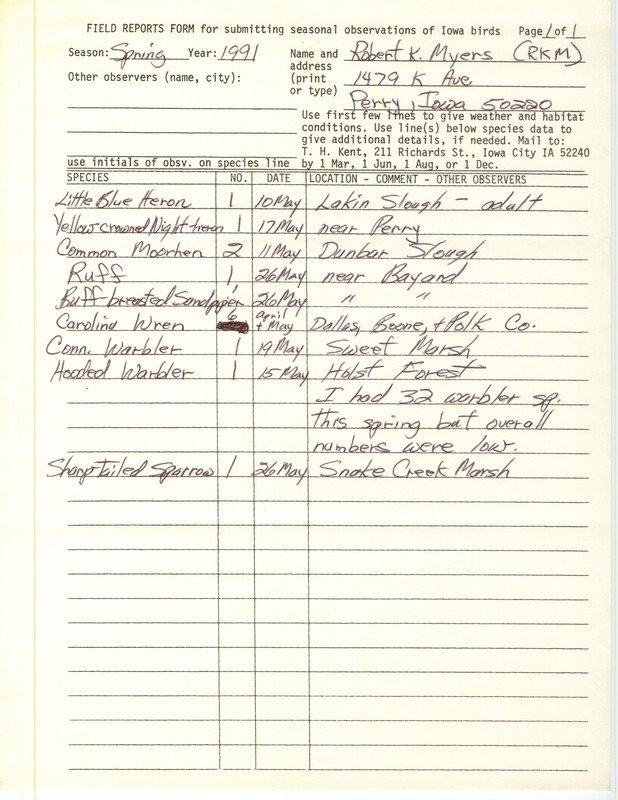 FIELD REPORTS FORM for submitting seasonal observations of Iowa birds Page 1 of 1
Season: Spring Year: 1991 Name and Robert K. Myers (RKM)
address
Other observers (name, city): (print 1479 K Ave.
or type) Perry, Iowa 50220
Use first few lines to give weather and habitat
conditions. Use line(s) below species data to
give additional details, if needed. Mail to:
T. H. Kent, 211 Richards St., Iowa City IA 52240
use initials of obsv. on species line by 1 Mar, 1 Jun, 1 Aug, or 1 Dec.
SPECIES NO. DATE LOCATION - COMMENT - OTHER OBSERVERS
Little Blue Heron 1 10 May Lakin Slough - adult
Yellow crowned Night heron 1 17 May near Perry
Common Moorhen 2 11 May Dunbar Slough
Ruff 1 26 May near Bayard
Buff-breasted Sandpiper 1 26 May " "
Carolina Wren 6 April + May Dallas, Boone, + Polk Co.
Conn. Warbler 1 19 May Sweet Marsh
Hooded Warbler 1 15 May Holst Forest
I had 32 warbler sp.
this spring but overall
numbers were low.
Sharp-tailed Sparrow 1 26 May Snake Creek Marsh